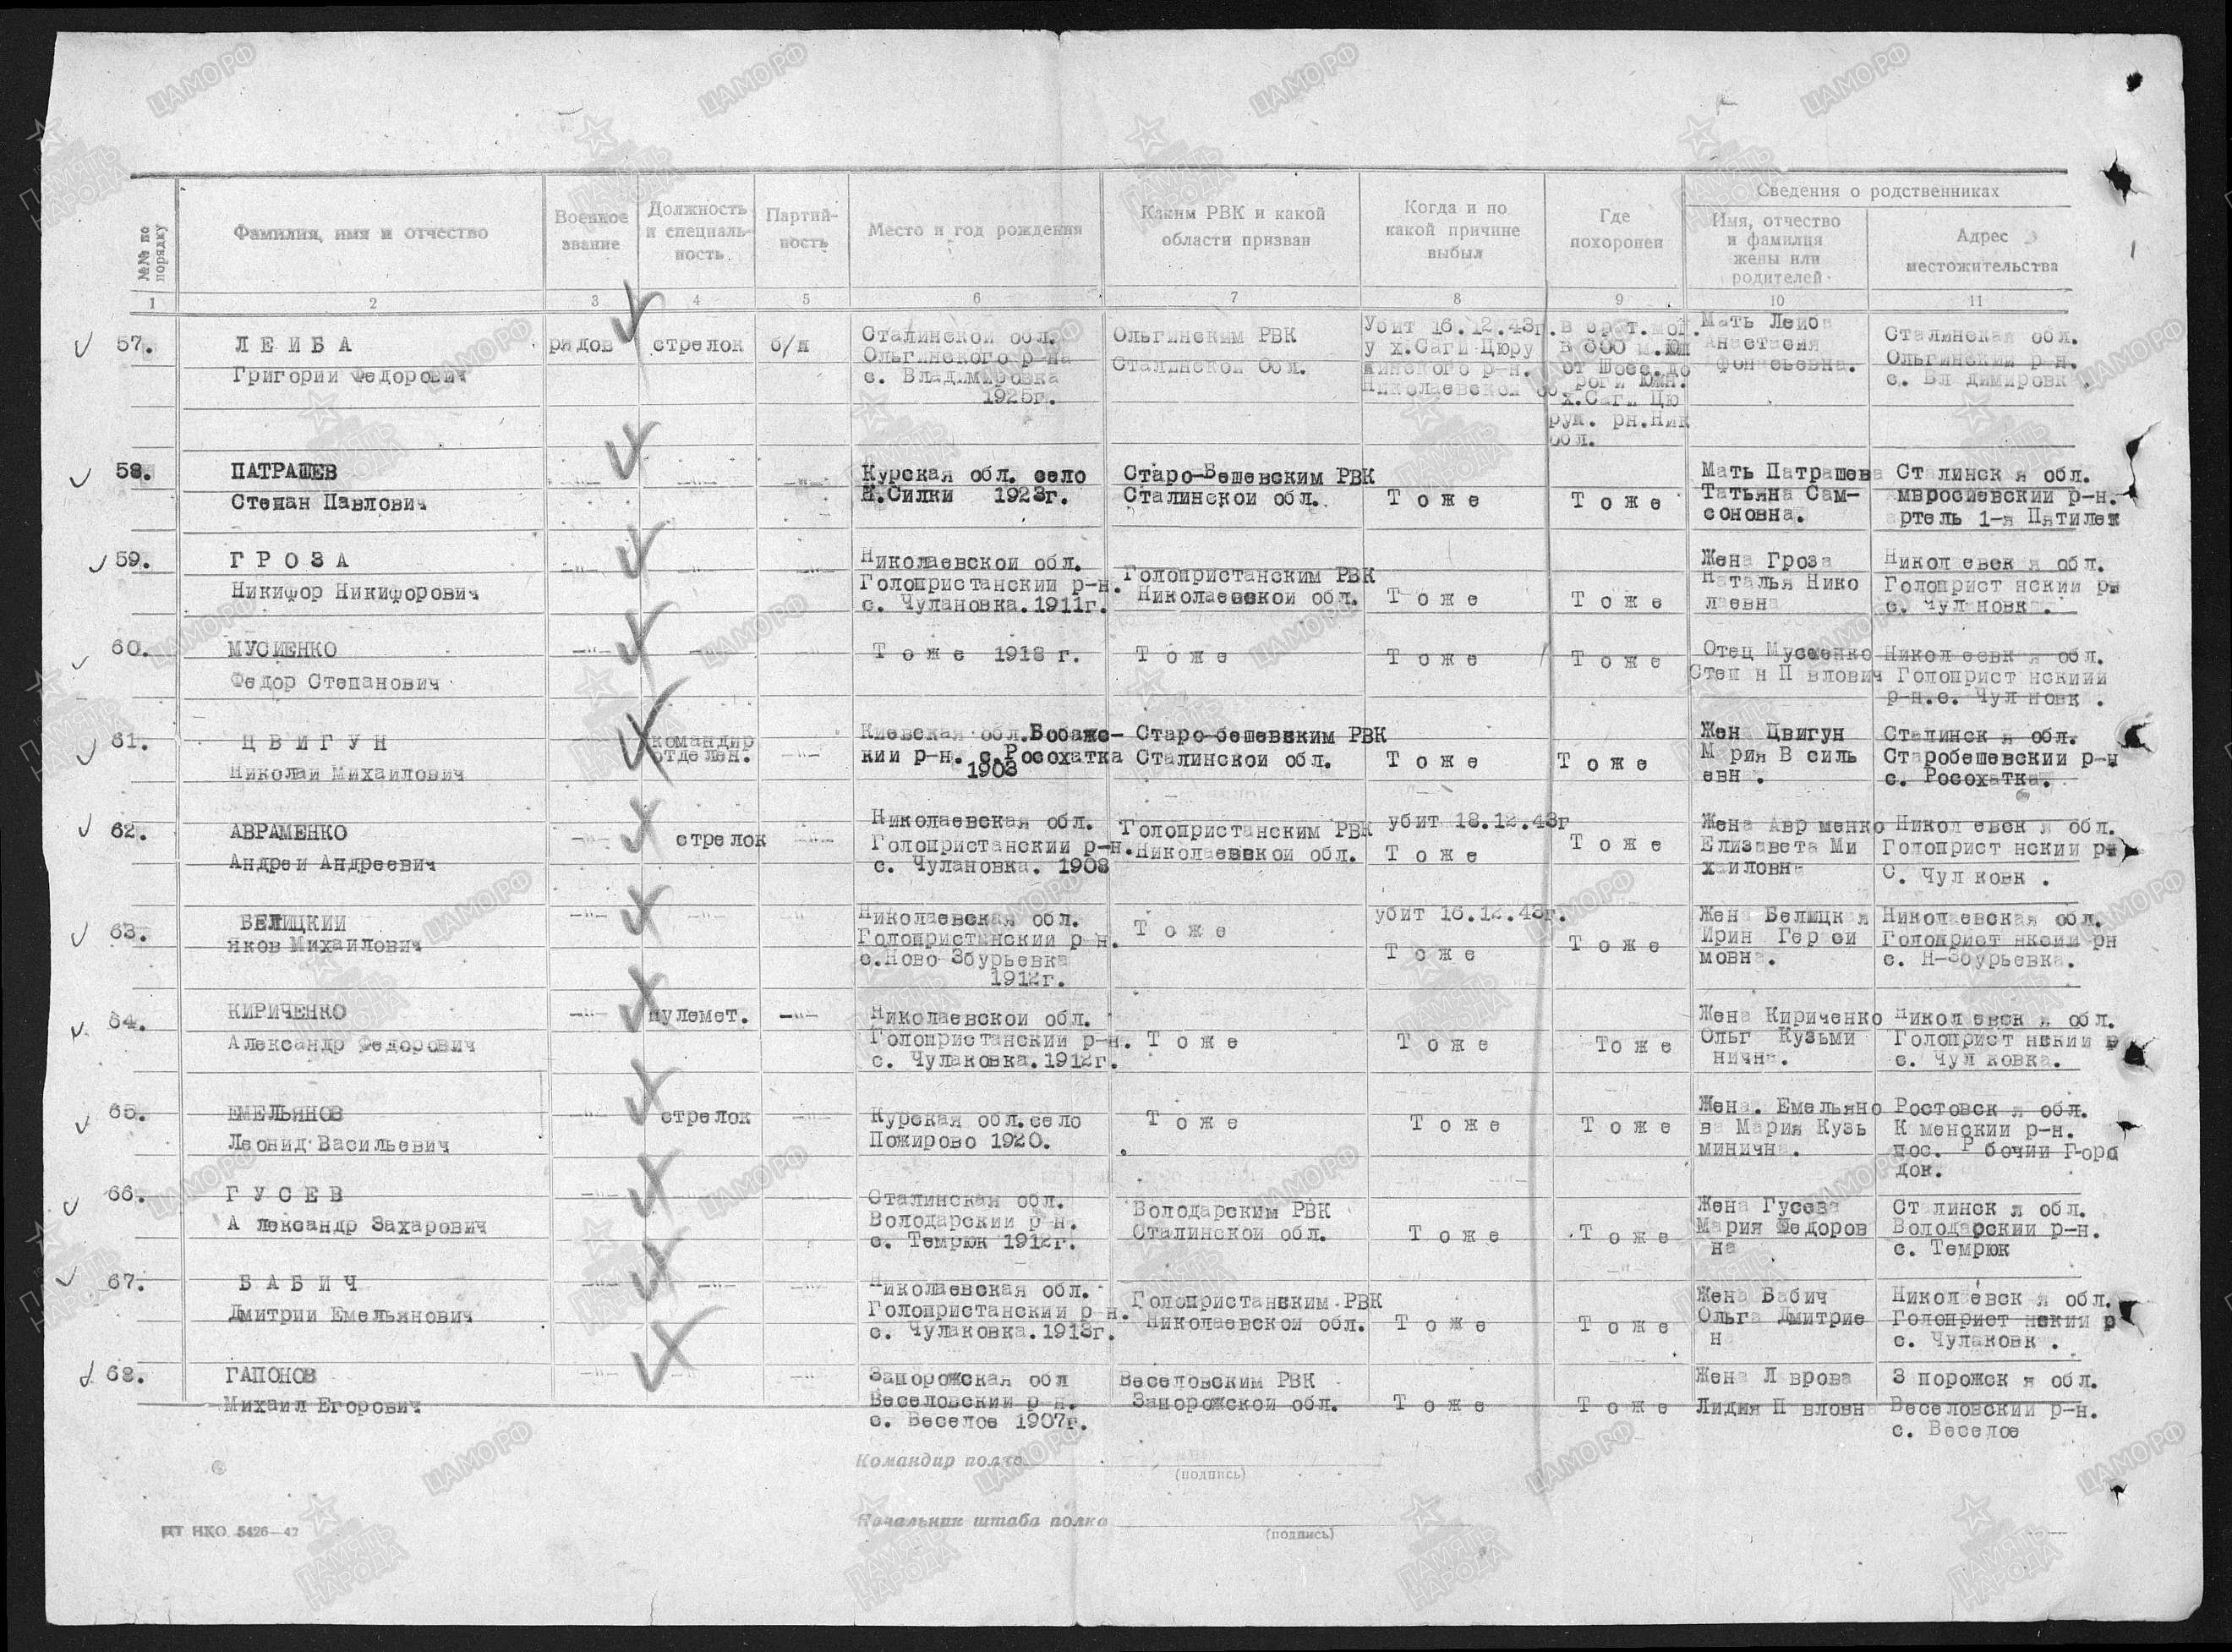 №№ по порядку
Фамилия, имя и отчество
Военное звание
Должность и специаль-
ность
Партий-
ность
Место и год рождения
Каким РВК и какой области призван
Когда и по какой причине выбыл
Где похоронен
Сведения о родственниках
Имя, отчество и фамилия жены или родителей
Адрес местожительства
1 2 3 4 5 6 7 8 9 10 11
57.
ЛЕИБА
Григории Федорович
рядов
стрелок
б/п
Сталинскои обл.
Ольгинского р-на
с. Владимировка
1925г.
Ольгинским РВК
Сталинскои обл.
Убит 16.12.43г.
у х.Саги Цюру
пинского р-н.
Николаевскои об
в брат.мог.
в 800 м.юж
от шосс.до
роги южн.
х.Саги Цю
руп. рн.Ник
обл.
Мать Леиба
Анастасия
Афонасьевна.
Сталинская обл.
Ольгинскии р-н.
с. Вл димировк .
58.
ПАТРАШЕВ
Степан Павлович
-"-
-"-
-"-
Курская обл. село
Н.Силки 1923г.
Старо-Бешевским РВК
Сталинскои обл.
Тоже
Тоже
Мать Патрашева
Татьяна Сам-
соновна.
Сталинск я обл.
Амвросиевскии р-н.
артель 1-я Пятилет
59.
ГРОЗА
Никифор Никифорович
-"-
-"-
-"-
Николаевскои обл.
Голопристанскии р-н.
с. Чулановка.1911г.
Голопристанским РВК
Николаевскои обл.
Тоже
Тоже
Жена Гроза
Наталья Нико
лаевна
Никол евск я обл.
Голоприст нскии рн
с. Чул новк .
60.
МУСИЕНКО
Федор Степанович
-"-
-"-
-"-
Тоже 1918 г.
Тоже
Тоже
Тоже
Отец Мусиенко
Степ н П влович
Никол евск я обл.
Голоприст нскиии
р-н.с. Чул новк .
61.
ЦВИГУН
Николаи Михаилович
командир
отделен.
-"-
Киевская обл.Бобажс-
кии р-н. с.Росохатка
1903
Старо-бешевским РВК
Сталинскои обл.
Тоже
Тоже
Жен Цвигун
М рия В силь
евн .
Сталинск я обл.
Старобешевскии р-н
с. Росохатка.
62.
АВРАМЕНКО
Андреи Андреевич
-"-
стрелок
-"-
Николаевская обл.
Голопристанскии р-н.
с. Чулановка. 1908
Голопристанским РВК
Николаевскои обл.
убит 18.12.43г
Тоже
Тоже
Жена Авр менко
Елизавета Ми
хаиловн
Никол евск я обл.
Голоприст нскии рн
С. Чул ковк .
63.
БЕЛИЦКИИ
Яков Михаилович
-"-
-"-
-"-
Николаевская обл.
Голопристанскии р-н.
с.Ново-Збурьевка
1912г.
Тоже
убит 16.12.43г.
Тоже
Тоже
Жен Белицк я
Ирин Гер си
мовна.
Николаевская обл.
Голоприст нкски рн
с. Н-Збурьевка.
64.
КИРИЧЕНКО
Александр Федорович
-"-
пулемет.
-"-
Николаевскои обл.
Голопристанскии р-н.
с. Чулаковка.1912г.
Тоже
Тоже
Тоже
Жена Кириченко
Ольг Кузьми
нична.
Никол евск я обл.
Голоприст нскии р
с. Чул ковка.
65.
ЕМЕЛЬЯНОВ
Леонид Васильевич
-"-
стрелок
-"-
Курская обл.село
Пожирово 1920.
Тоже
Тоже
Тоже
Жена. Емельяно
ва Мария Кузь
миничн .
Ростовск я обл.
К менскии р-н.
пос. Р бочии Горо
док.
66.
ГУСЕВ
А лександр Захарович
-"-
-"-
-"-
Сталинская обл.
Володарскии р-н.
с. Темрюк 1912г.
Володарским РВК
Сталинскои обл.
Тоже
Тоже
Жена Гусева
Мария Федоров
на
Ст линск я обл.
Володарскии р-н.
с. Темрюк
67.
БАБИЧ
Дмитрии Емельянович
-"-
-"-
-"-
Николаевская обл.
Голопристанскии р-н.
с. Чулаковка.1913г.
Голопристанским РВК
Николаевскои обл.
Тоже
Тоже
Жена Бабич
Ольга Дмитрие
н
Никол евск я обл.
Голоприст нскии р
с. Чулаковк .
68.
ГАПОНОВ
Михаил Егорович
-"-
-"-
Запорожская обл
Веселовскии р-н.
с. Веселое 1907г.
Веселовским РВК
Запорожскои обл.
Тоже
Тоже
Жена Л врова
Лидия П вловн
З порожск я обл.
Веселовскии р-н.
с. Веселое
Командир полка
(подпись)
Начальник штаба полка
(подпись)
ЦТ НКО 5426—42
ЦАМО РФ
ПАМЯТЬ НАРОДА